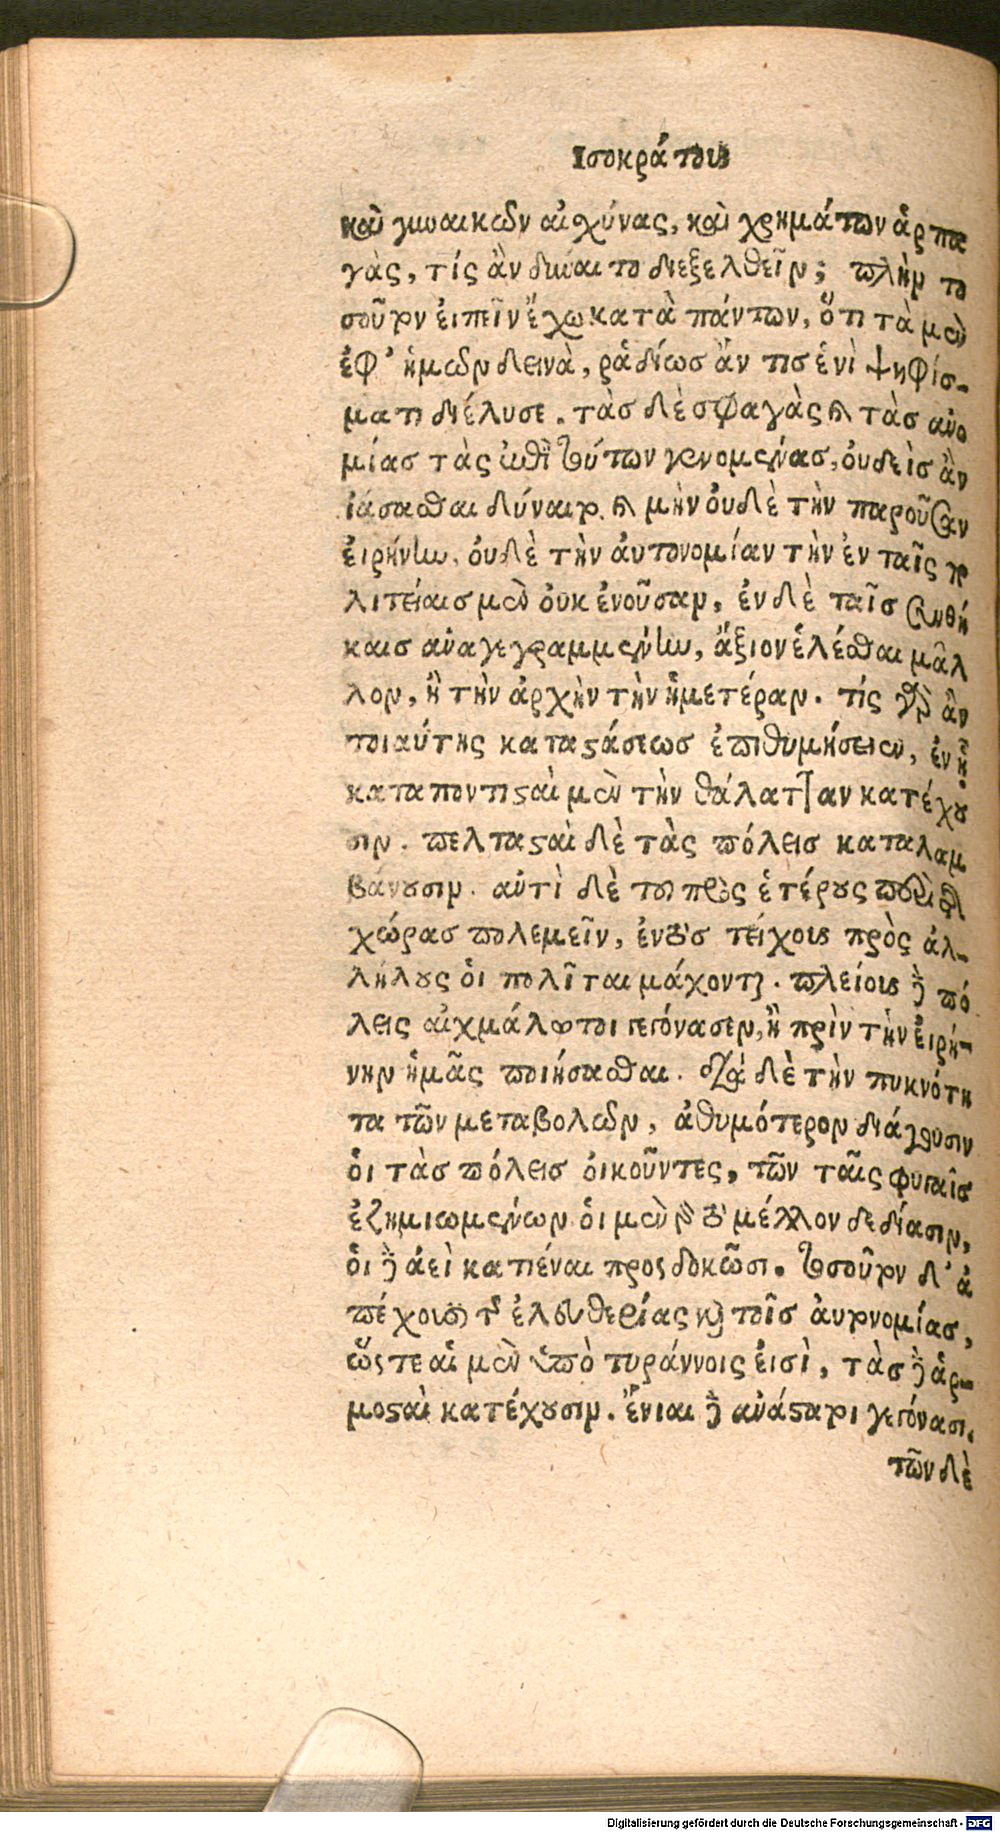 Ισοκράτους
καὶ γυναικῶν αἰσχύνας, καὶ χρημάτων ἁρπα
γὰς, τίς ἂν δύναιτο διεξελθεῖν; πλὴν το
σοῦτον ἐιπεῖν ἔχω κατὰ πάντων, ὅτι τὰ μὲν
ἐφ’ ἡμῶν δεινὰ, ῥαδίως ἄν τις ἑνὶ ψηφίσ-
ματι διέλυσε. τὰς δὲ σφαγὰς καὶ τὰς ἀνο
μίας τὰς ἐπὶ τούτων γενομένας, ὀυδεὶς ἂν
ἰάσασθαι δύναιτο. καὶ μὴν ὀυδὲ τὴν παροῦσαν
ἐιρήνην, ὀυδὲ τὴν ἀυτονομίαν τὴν ἐν ταῖς πο
λιτείαις μὲν ὀυκ ἐνοῦσαν, ἐν δὲ ταῖς συνθή
καις ἀναγεγραμμένην, ἄξιον ἑλέσθαι μᾶλ
λον, ἢ τὴν ἀρχὴν τὴν ἡμετέραν. τίς γὰρ ἂν
τοιαύτης καταστάσεως ἐπιθυμήσειεν, ἐν ᾗ
καταποντισταὶ μὲν τὴν θάλατταν κατέχου
σιν. πελτασταὶ δὲ τὰς πόλεις καταλαμ
βάνουσιν. ἀντὶ δὲ τοῦ πρὸς ἑτέρους περὶ τῆς
χώρας πολεμεῖν, ἐντὸς τείχους πρὸς ἀλ-
λήλους ὁι πολῖται μάχονται. πλείους δὲ πό
λεις αἰχμάλωτοι γεγόνασιν, ἢ πρὶν τὴν ἐιρή-
νην ἡμᾶς ποιήσασθαι. διὰ δὲ τὴν πυκνότη
τα τῶν μεταβολῶν, ἀθυμότερον διάγουσιν
ὁι τὰς πόλεις ὀικοῦντες, τῶν ταῖς φυγαῖς
ἐζημιωμένων. ὁι μὲν γὰρ τὸ μέλλον δεδίασιν,
ὁι δὲ ἀεὶ κατιέναι προςδοκῶσι. τοσοῦτον δ’ ἀ
πέχουσι τῆς ἐλευθερίας καὶ τοῖς ἀυτονομίας,
ὥςτε αἱ μὲν ὑπὸ τυράννοις ἐισὶ, τὰς δὲ ἁρ-
μοσταὶ κατέχουσιν. ἔνιαι δὲ ἀνάστατοι γεγόνασι.
τῶν δὲ
Digitalisierung gefördert durch die Deutsche Forschungsgemeinschaft - DFG